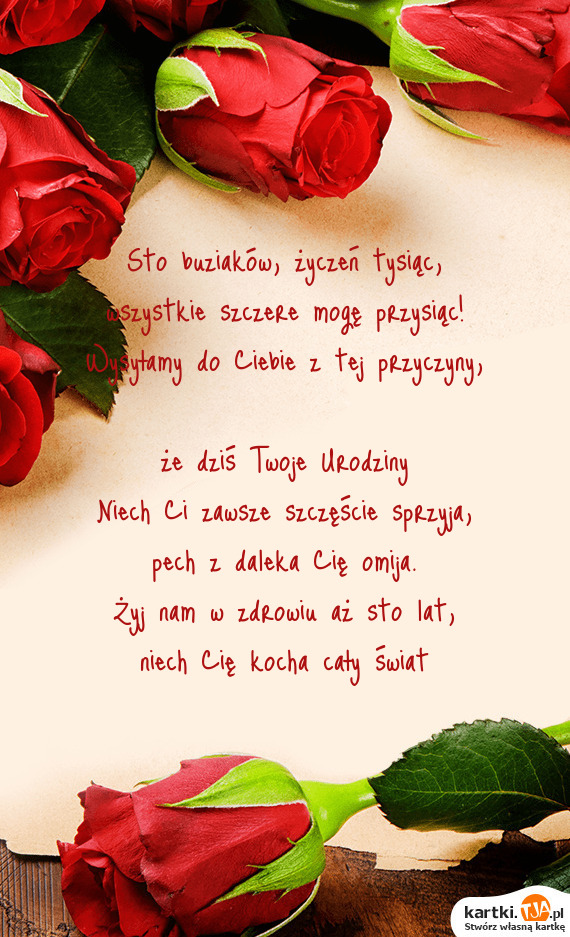 Sto buziaków, życzeń tysiąc,
wszystkie szczere mogę przysiąc!
Wysyłamy do Ciebie z tej przyczyny,
że dziś Twoje Urodziny
Niech Ci zawsze szczęście sprzyja,
pech z daleka Cię omija.
Żyj nam w zdrowiu aż sto lat,
niech Cię kocha cały świat
kartki.TJA.pl
Stwórz własną kartkę